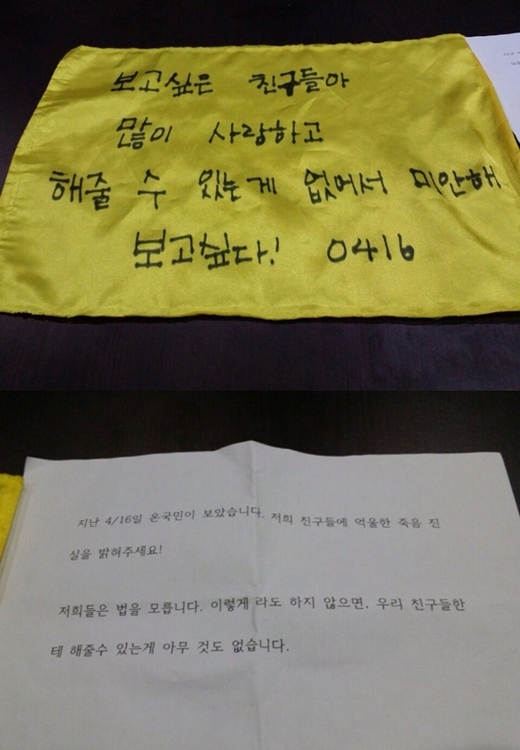 보고싶은 친구들아
많이 사랑하고
해줄 수 있는게 없어서 미안해
보고싶다! 0416
지난 4/16일 온국민이 보았습니다. 저희 친구들에 억울한 죽음 진
실을 밝혀주세요!
저희들은 법을 모릅니다. 이렇게 라도 하지 않으면, 우리 친구들한
테 해줄수 있는게 아무 것도 없습니다.